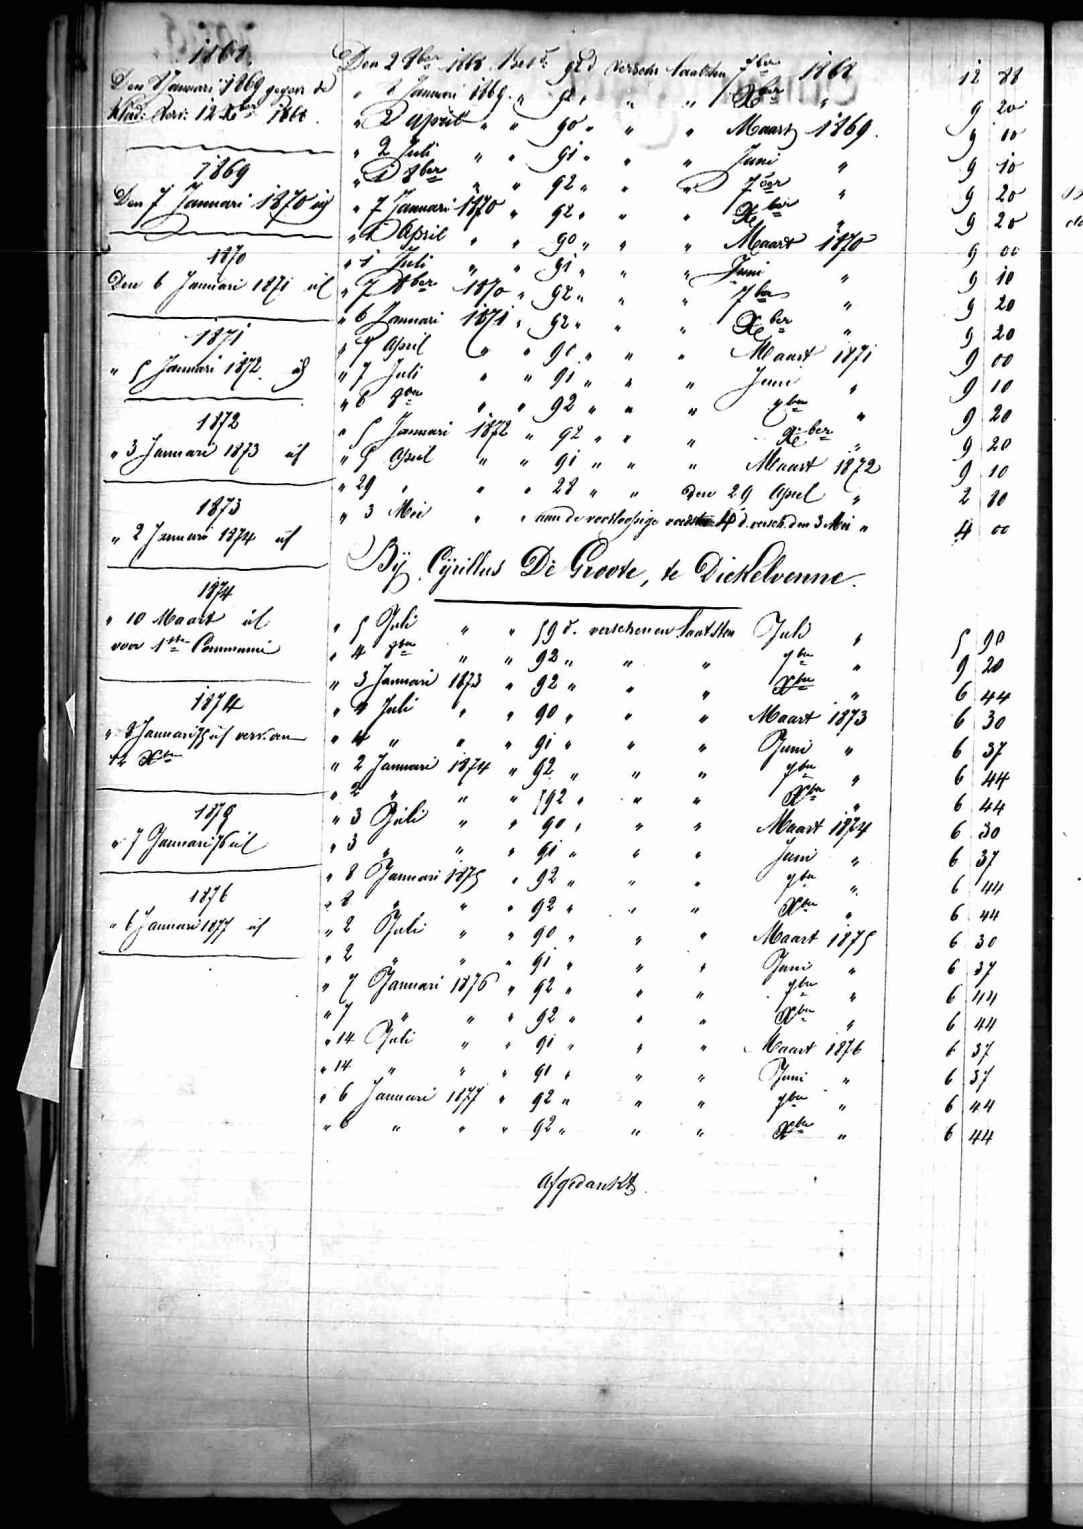 1868.
Den 8 Januari 1869 gegeven de
Kled: Kari: 12 Xber 1868.
1869
Den 7 Januari 1870 id
1870
Den 6 Januari 1871 id
1871
" 5 Januari 1872 id
1872
" 3 Januari 1873 id
1873
" 2 Januari 1874 id
1874
" 10 Maart id
voor 1ste Communie
1874
" 8 Januari 75 id
12 Xber
1875
" 7 Januari 76 id
1876
" 6 Januari 1877 id
Den 2 8ber 1868 Betd 92d versch: laatsten 7ber 1868 12 88
" 8 Januari 1869 " 92 " " " Xber " 9 20
" 2 April " " 90 " " " Maart 1869. 9 00
" 2 Juli " " 91 " " " Juni " 9 10
" 1 8ber " " 92 " " " 7ber " 9 20
" 7 Januari 1870 " 92 " " " Xber " 9 20
" 1 April " " 90 " " " Maart 1870 9 00
" 1 Juli " " 91 " " " Juni " 9 10
" 7 8ber 1870 " 92 " " " 7ber " 9 20
" 6 Januari 1871 " 92 " " " Xber " 9 20
" 7 April " " 90 " " " Maart 1871 9 00
" 7 Juli " " 91 " " " Juni " 9 10
" 6 8ber " " 92 " " " 7ber " 9 20
" 5 Januari 1872 " 92 " " " Xber " 9 20
" 5 April " " 91 " " " Maart 1872 9 10
" 29 " " " 28 " " den 29 April " 2 80
" 3 Mei " " aan de voorloopige voedster 4 d. versch. den 3 Mei " 4 00
Bij Cyrillus De Groote, te Dickelvenne.
" 5 Juli " " 59 d. verschenen laatsten Juli " 5 90
" 4 8ber " " 92 " " " 7ber " 9 20
" 3 Januari 1873 " 92 " " " Xber " 6 44
" 4 Juli " " 90 " " " Maart 1873 6 30
" 4 " " " 91 " " " Juni " 6 37
" 2 Januari 1874 " 92 " " " 7ber " 6 44
" 2 " " " 92 " " " Xber " 6 44
" 3 Juli " " 90 " " " Maart 1874 6 30
" 3 " " " 91 " " " Juni " 6 37
" 8 Januari 1875 " 92 " " " 7ber " 6 44
" 8 " " " 92 " " " Xber " 6 44
" 2 Juli " " 90 " " " Maart 1875 6 30
" 2 " " " 91 " " " Juni " 6 37
" 7 Januari 1876 " 92 " " " 7ber " 6 44
" 7 " " " 92 " " " Xber " 6 44
" 14 Juli " " 91 " " " Maart 1876 6 37
" 14 " " " 91 " " " Juni " 6 37
" 6 Januari 1877 " 92 " " " 7ber " 6 44
" 6 " " " 92 " " " Xber " 6 44
Afgedankt.